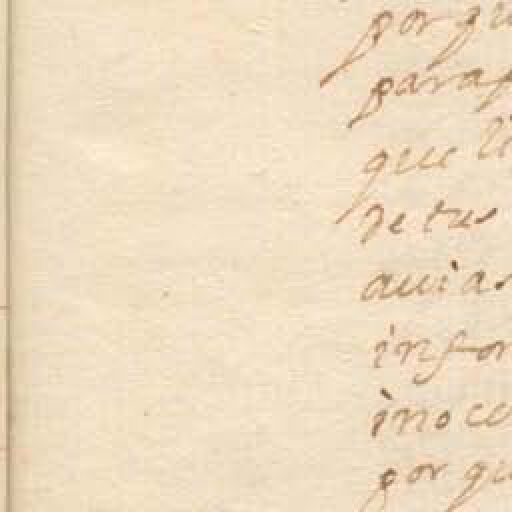 por qu
para
que li
de tus
auias
infor
inoce
por qu